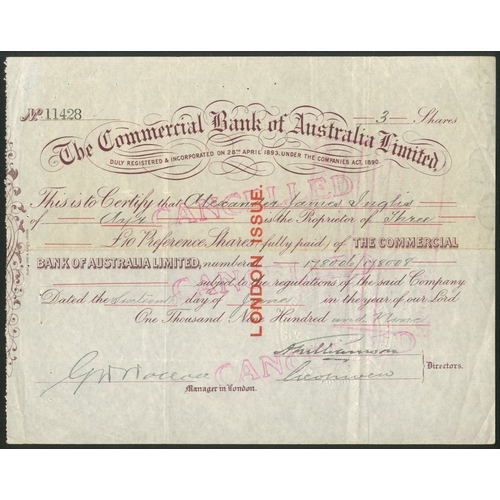 No 11428
3 Shares
The Commercial Bank of Australia Limited.
DULY REGISTERED & INCORPORATED ON 28TH APRIL 1893, UNDER THE COMPANIES ACT, 1890.
This is to Certify that Alexander James Inglis
of Ayr is the Proprietor of Three
£10 Preference Shares (fully paid) of THE COMMERCIAL
BANK OF AUSTRALIA LIMITED, numbered 178006/178008
subject to the regulations of the said Company.
Dated the Sixteenth day of June in the year of our Lord
One Thousand Nine Hundred and Nine
LONDON ISSUE.
CANCELLED
CANCELLED
CANCELLED
Williamson
Directors.
Manager in London.